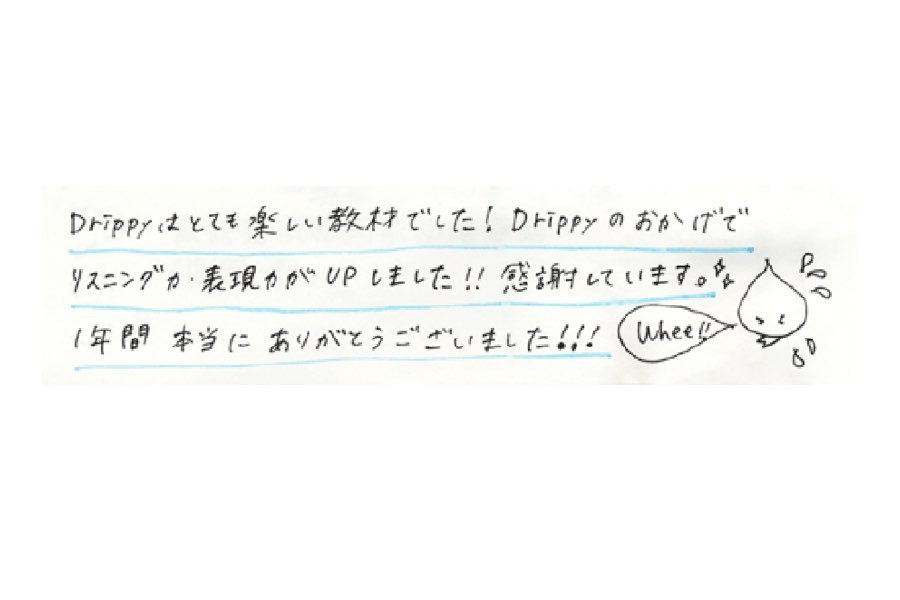 Drippyはとても楽しい教材でした！Drippyのおかげで
リスニング力・表現力がUPしました!!感謝しています。
1年間 本当に ありがとうございました!!!
Whee!!